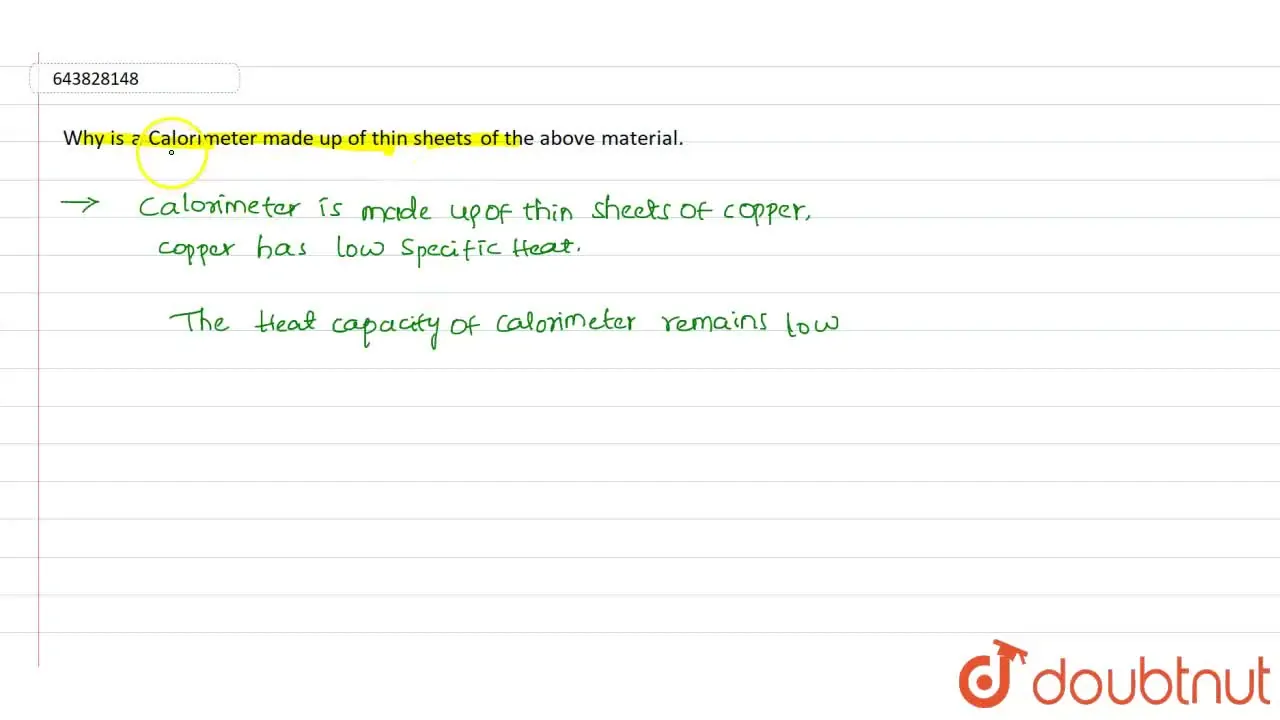 643828148
Why is a Calorimeter made up of thin sheets of the above material.
→ Calorimeter is made up of thin sheets of copper.
copper has low specific Heat.
The Heat capacity of calorimeter remains low
doubtnut